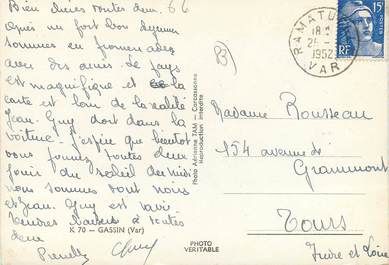 Bien chères toutes deux. 66
Après un fort bon déjeuner
sommes en promenades
avec des amis. Le pays
est magnifique et la
carte est loin de la réalité
Jean-Guy dort dans la
voiture. J'espère que bientôt
vous pourrez toutes deux
jouir du soleil du midi
nous sommes tout noirs
et Jean-Guy est ravi.
Tendres baisers à toutes
deux
K 70 - GASSIN (Var)
PHOTO
VERITABLE
Photo Adrienne TAM - Carcassonne
Reproduction interdite
RAMATUELLE
1952
VAR
15F
RF
Madame Rousseau
154 avenue de
Grammont
Tours
Indre et Loire